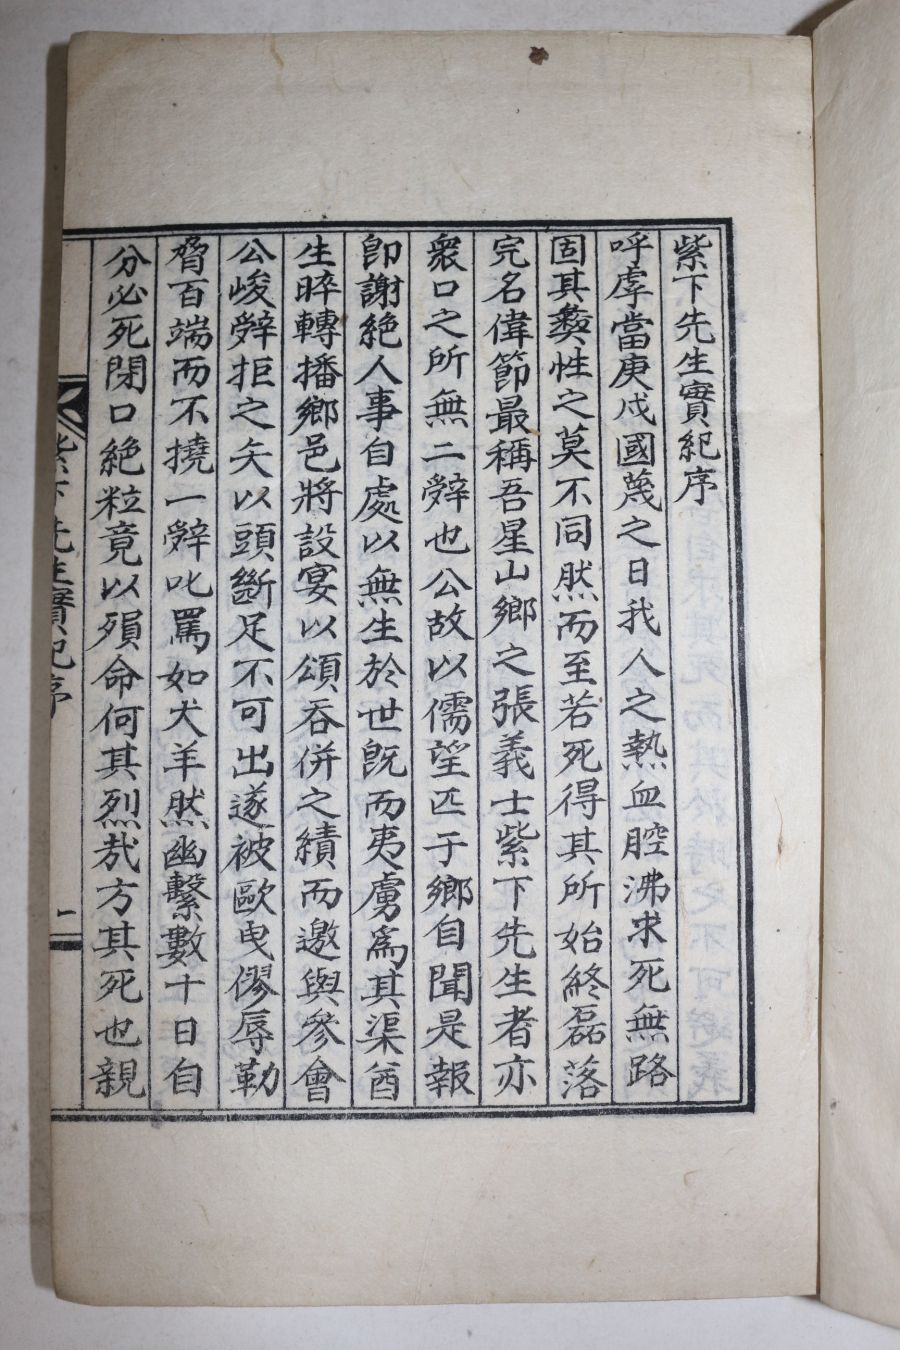 紫下先生實紀序
呼虖當庚戌國蔑之日我人之熱血腔沸求死無路
固其彜性之莫不同然而至若死得其所始終磊落
完名偉節最稱吾星山鄉之張義士紫下先生者亦
衆口之所無二辤也公故以儒望匹于鄉自聞是報
卽謝絶人事自處以無生於世旣而夷虜爲其渠酋
生晬轉播鄉邑將設宴以頌吞併之績而邀與參會
公峻辤拒之矢以頭斷足不可出遂被歐曳僇辱勒
脅百端而不撓一辤叱罵如犬羊然幽繫數十日自
分必死閉口絶粒竟以殞命何其烈哉方其死也親
紫下先生實紀序
二